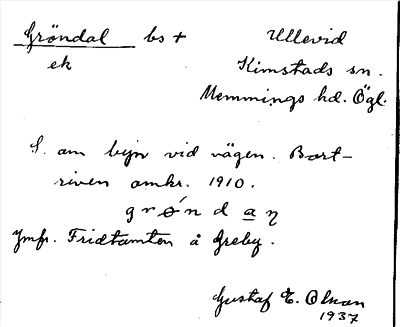 Gröndal bs + Ullevid
ek Kimstads sn.
Memmings hd. Ögl.
S. om byn vid vägen. Bort-
riven omkr. 1910.
grǿndaꞃ
Jmfr. Fridtomten å Greby.
Gustaf E. Olson
1937